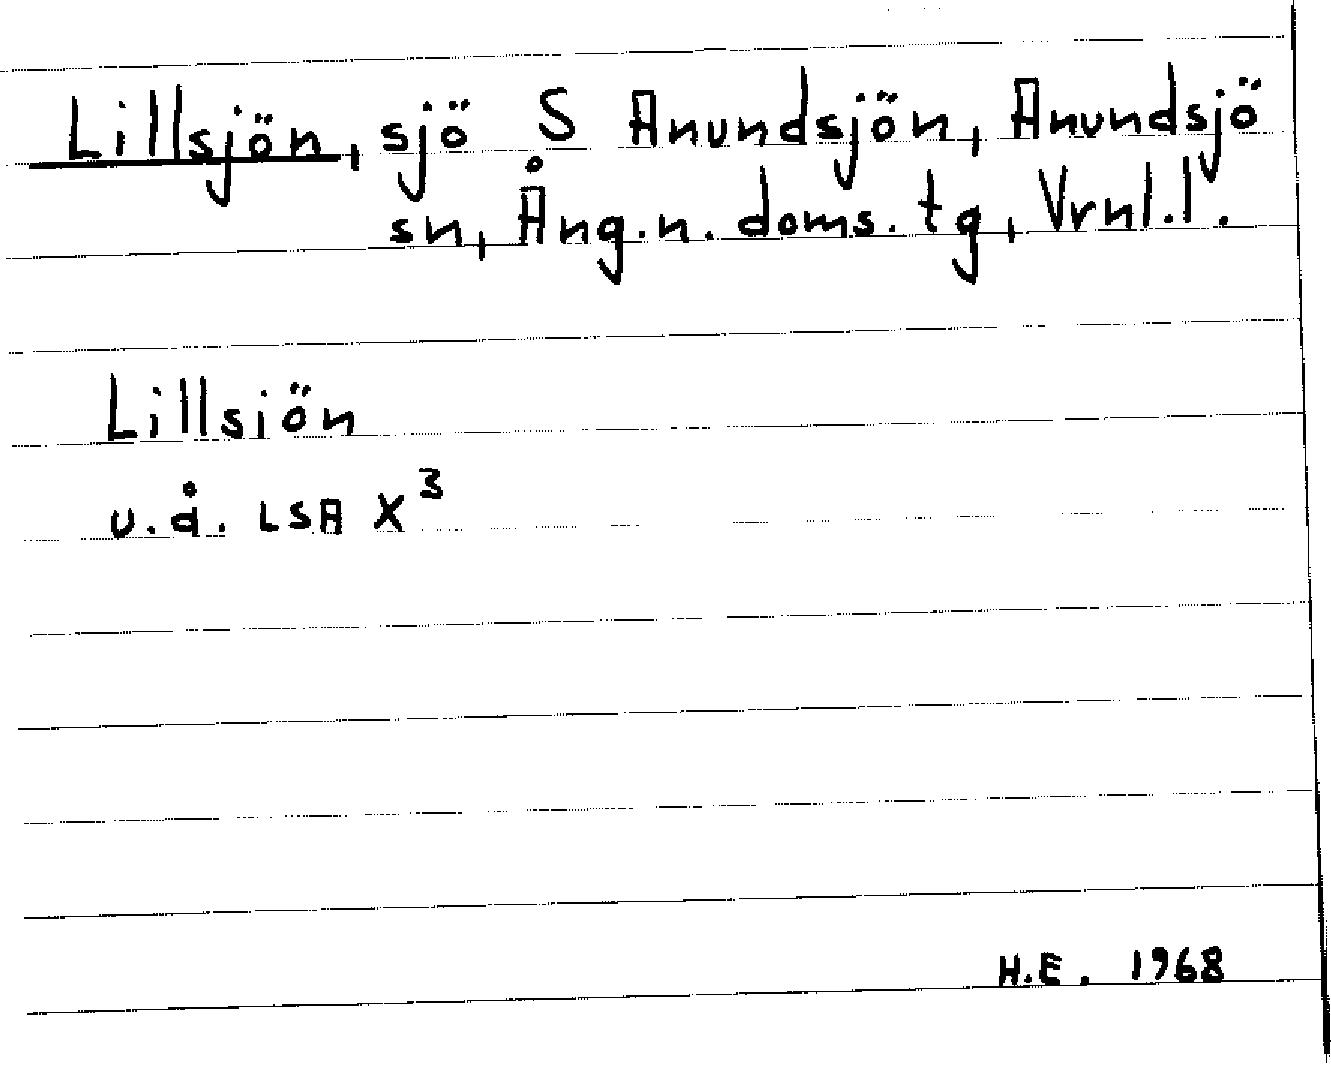 Lillsjön, sjö S Anundsjön, Anundsjö
sn, Ång.n. doms. tg, Vrnl.l.
Lillsiön
u.å. LSA X³
H.E. 1968